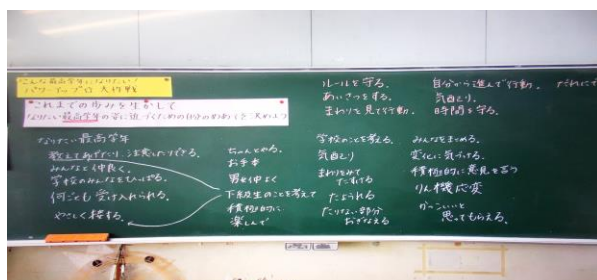 こんな最高学年になりたい!
パワーアップ大作戦
これまでの歩みを生かして
なりたい最高学年の姿に近づくための自分のめあてを決めよう
なりたい最高学年
教えてあげたり、注意したりできる。
みんなと仲良く。
学校のみんなをひっぱる。
何ごとも受け入れられる。
やさしく接する。
ちゃんとやる。
お手本
男女仲よく
下級生のことを考えて
積極的に
楽しんで
ルールを守る。
あいさつをする。
まわりを見て行動。
学校のことを考える。
気配り
まわりをみて
たすける
たよられる
たりない部分
おぎなえる
自分から進んで行動。
気配り。
時間を守る。
みんなをまとめる。
変化に気づける。
積極的に意見を言う
りん機応変
かっこいいと
思ってもらえる。
だれにで